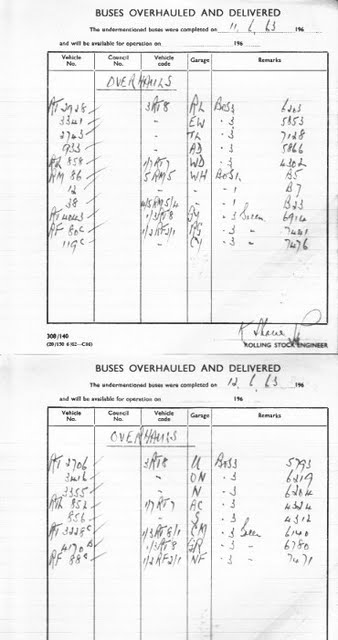 BUSES OVERHAULED AND DELIVERED
The undermentioned buses were completed on 11.6.63 196
and will be available for operation on 196
Vehicle No. Council No. Vehicle code Garage Remarks
OVERHAULS
RT 2928 3RT8 RL Body 6203
3341 " EW " 3 5853
2743 " TL " 3 7128
933 " AD " 3 5866
RTL 858 1/7RT7 WD " 3 4302
RM 86 5RM5 WH B5
12 " " " 1 B7
38 4/5RM5/4 " " 1 B23
RT 4043 1/3RT8 " 3 Green 6914
RF 80c 1/2RF2/1 " 3 " 7441
119c " " 3 " 7476
308/140
ROLLING STOCK ENGINEER
BUSES OVERHAULED AND DELIVERED
The undermentioned buses were completed on 12.6.63 196
and will be available for operation on 196
Vehicle No. Council No. Vehicle code Garage Remarks
OVERHAULS
RT 2706 3RT8 U 5793
3416 " ON " 3 6219
3355 " N " 3 6204
RTL 852 1/7RT7 AC " 3 4324
856 " " 3 4312
RT 3228c 1/3RT8/1 CM " 3 Green 6140
4170 1/3RT8 GR " 3 " 6780
RF 88c 1/2RF2/1 NF " 3 " 7471